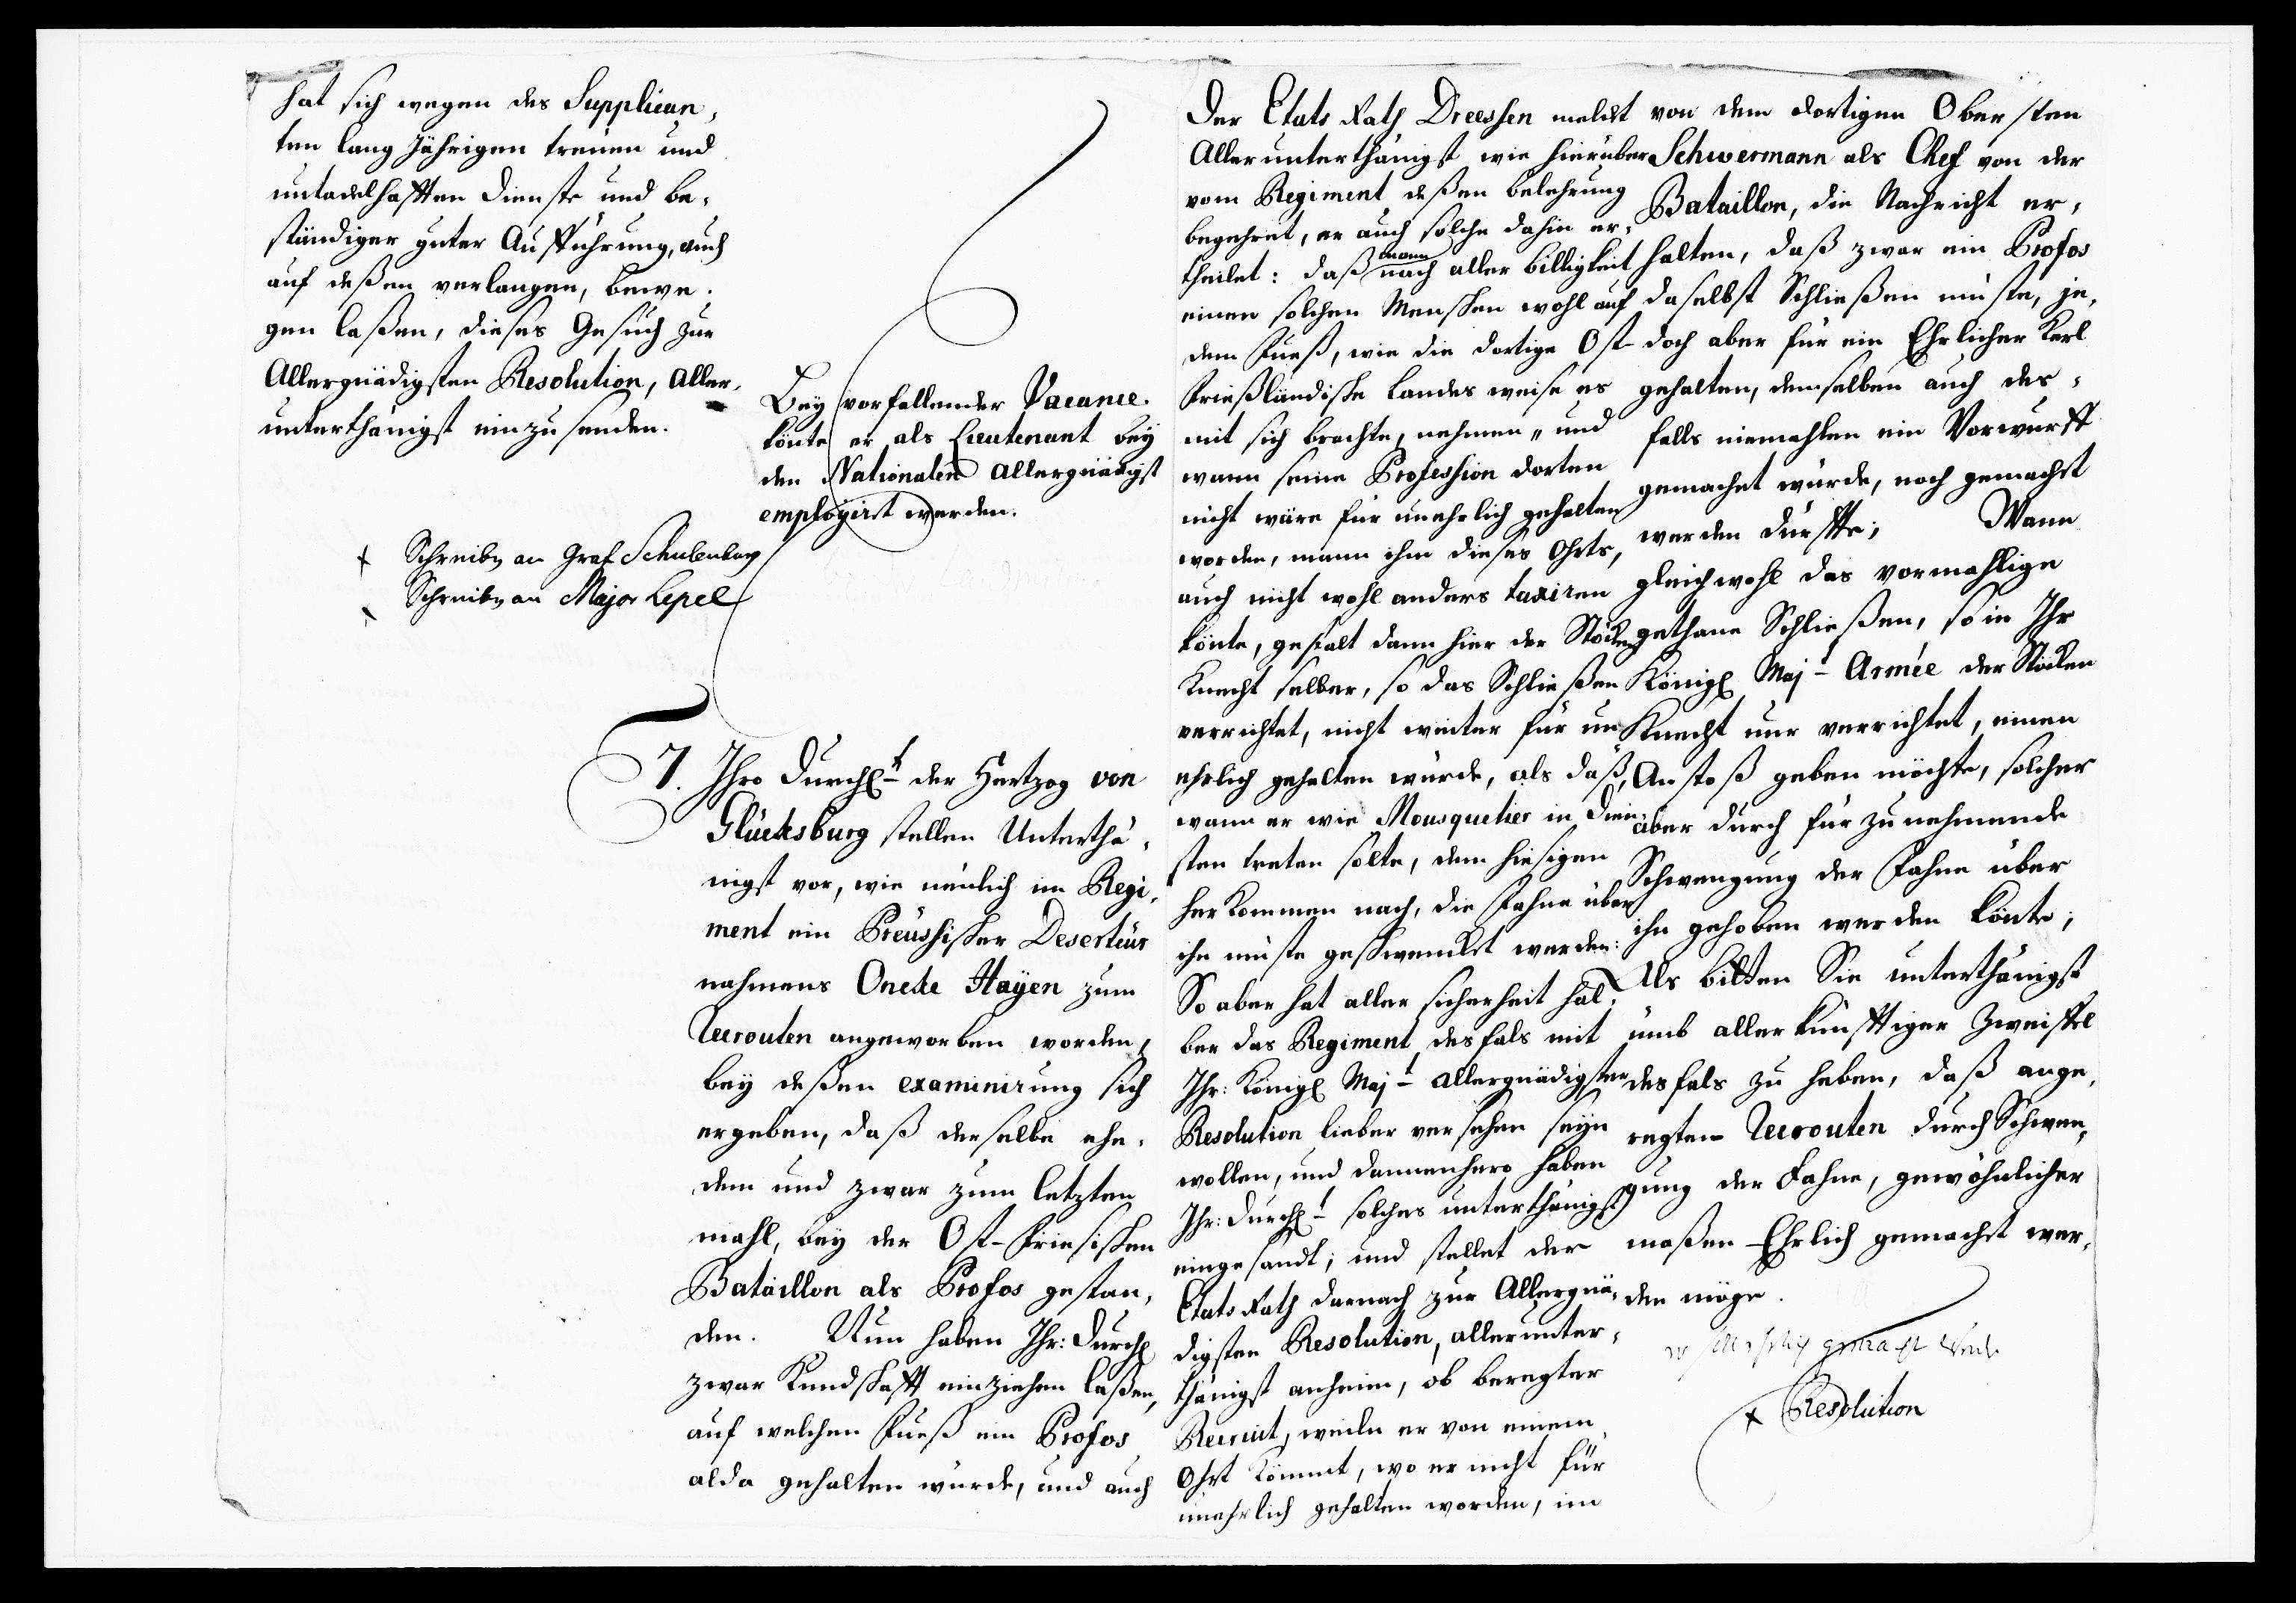 hat sich wegen des Supplican,
ten lang Jährigen treüen und
untadelhafften Dienste und be,
ständiger guter Aufführung, auch
auf deßen verlangen, bewe.
gen laßen, dieses Gesuch zur
Allergnädigsten Resolution, Aller,
unterthänigst einzusenden.
Bey vorfallender Vacance.
könte er als Lieutenant bey
den Nationalen Allergnädigst
employirt werden.
Schreibn an Graf Schulenburg
Schreibn an Major Lepel
7. Ihro Durchl. der Hertzog von
Glücksburg stellen Unterthä,
nigst vor, wie neülich im Regi,
ment ein Preüssischer Deserteür
nahmens Oncke Hayen zum
Recrouten angeworben worden,
bey deßen examinirung sich
ergeben, daß derselbe ehe,
dem und zwar zum letzten
mahl, bey der Ost-Friesischen
Bataillon als Profos gestan,
den. Nun haben Ihr: Durchl
zwar Kundschafft einziehen laßen,
auf welchen Fueß ein Profos
alda gehalten würde, und auch
von dem dortigen Obersten
Schwermann als Chef von der
Bataillon, die Nachricht er,
halten, daß zwar ein Profos
daselbst Schließen müste, je,
doch aber für ein Ehrlicher Kerl
gehalten, demselben auch des,
falls niemahlen ein Vorwurff
gemachet würde, noch gemacht
werden dürffte; Wann
gleichwohl das vormahlige
gethane Schließen, so in Ihr
Königl Maj.t Armée der Stöcken
Knecht nur verrichtet, einen
Anstoß geben möchte, solcher
aber durch fürzunehmende
Schwengung der Fahne über
ihn gehoben werden könte;
Als bitten Sie unterthänigst
ümb aller künfftiger Zweiffel
desfals zu heben, daß ange,
regten Recrouten durch Schwen,
gung der Fahne, gewöhnlicher
maßen Ehrlich gemacht wer,
den möge.
Der Etats Rath Dreessen meldet
Allerunterthänigst wie hierüber
vom Regiment deßen belehrung
begehret, er auch solche dahin er,
theilet: daß mann nach aller billigkeit
einen solchen Menschen wohl auf
dem Fueß, wie die dortige Ost-
Frießländische Landes weise es
mit sich brachte, nehmen, und
wann seine Profession dorten
nicht wäre für unehrlich gehalten
worden, mann ihn dieses Ohrts,
auch nicht wohl anders taxiren
könte, gestalt dann hier der Stöcken
Knecht selber, so das Schließen
verrichtet, nicht weiter für un
ehrlich gehalten würde, als daß,
wann er wie Mousquetier in Dien,
sten treten solte, dem hiesigen
herkommen nach, die Fahne über
ihn müste geschwencket werden:
So aber hat aller sicherheit hal,
ber das Regiment desfals mit
Ihr: Königl Maj.t allergnädigsten
Resolution lieber versehen seyn
wollen, und dannenhero haben
Ihr: Durchl.t solches unterthänigst
eingesandt; und stellet der
Etats Rath darnach zur Allergnä,
digsten Resolution, allerunter,
thänigst anheim, ob beregter
Recrut, weiln er von einem
Ohrt kömmt, wo er nicht für
unehrlich gehalten worden, im
Resolution